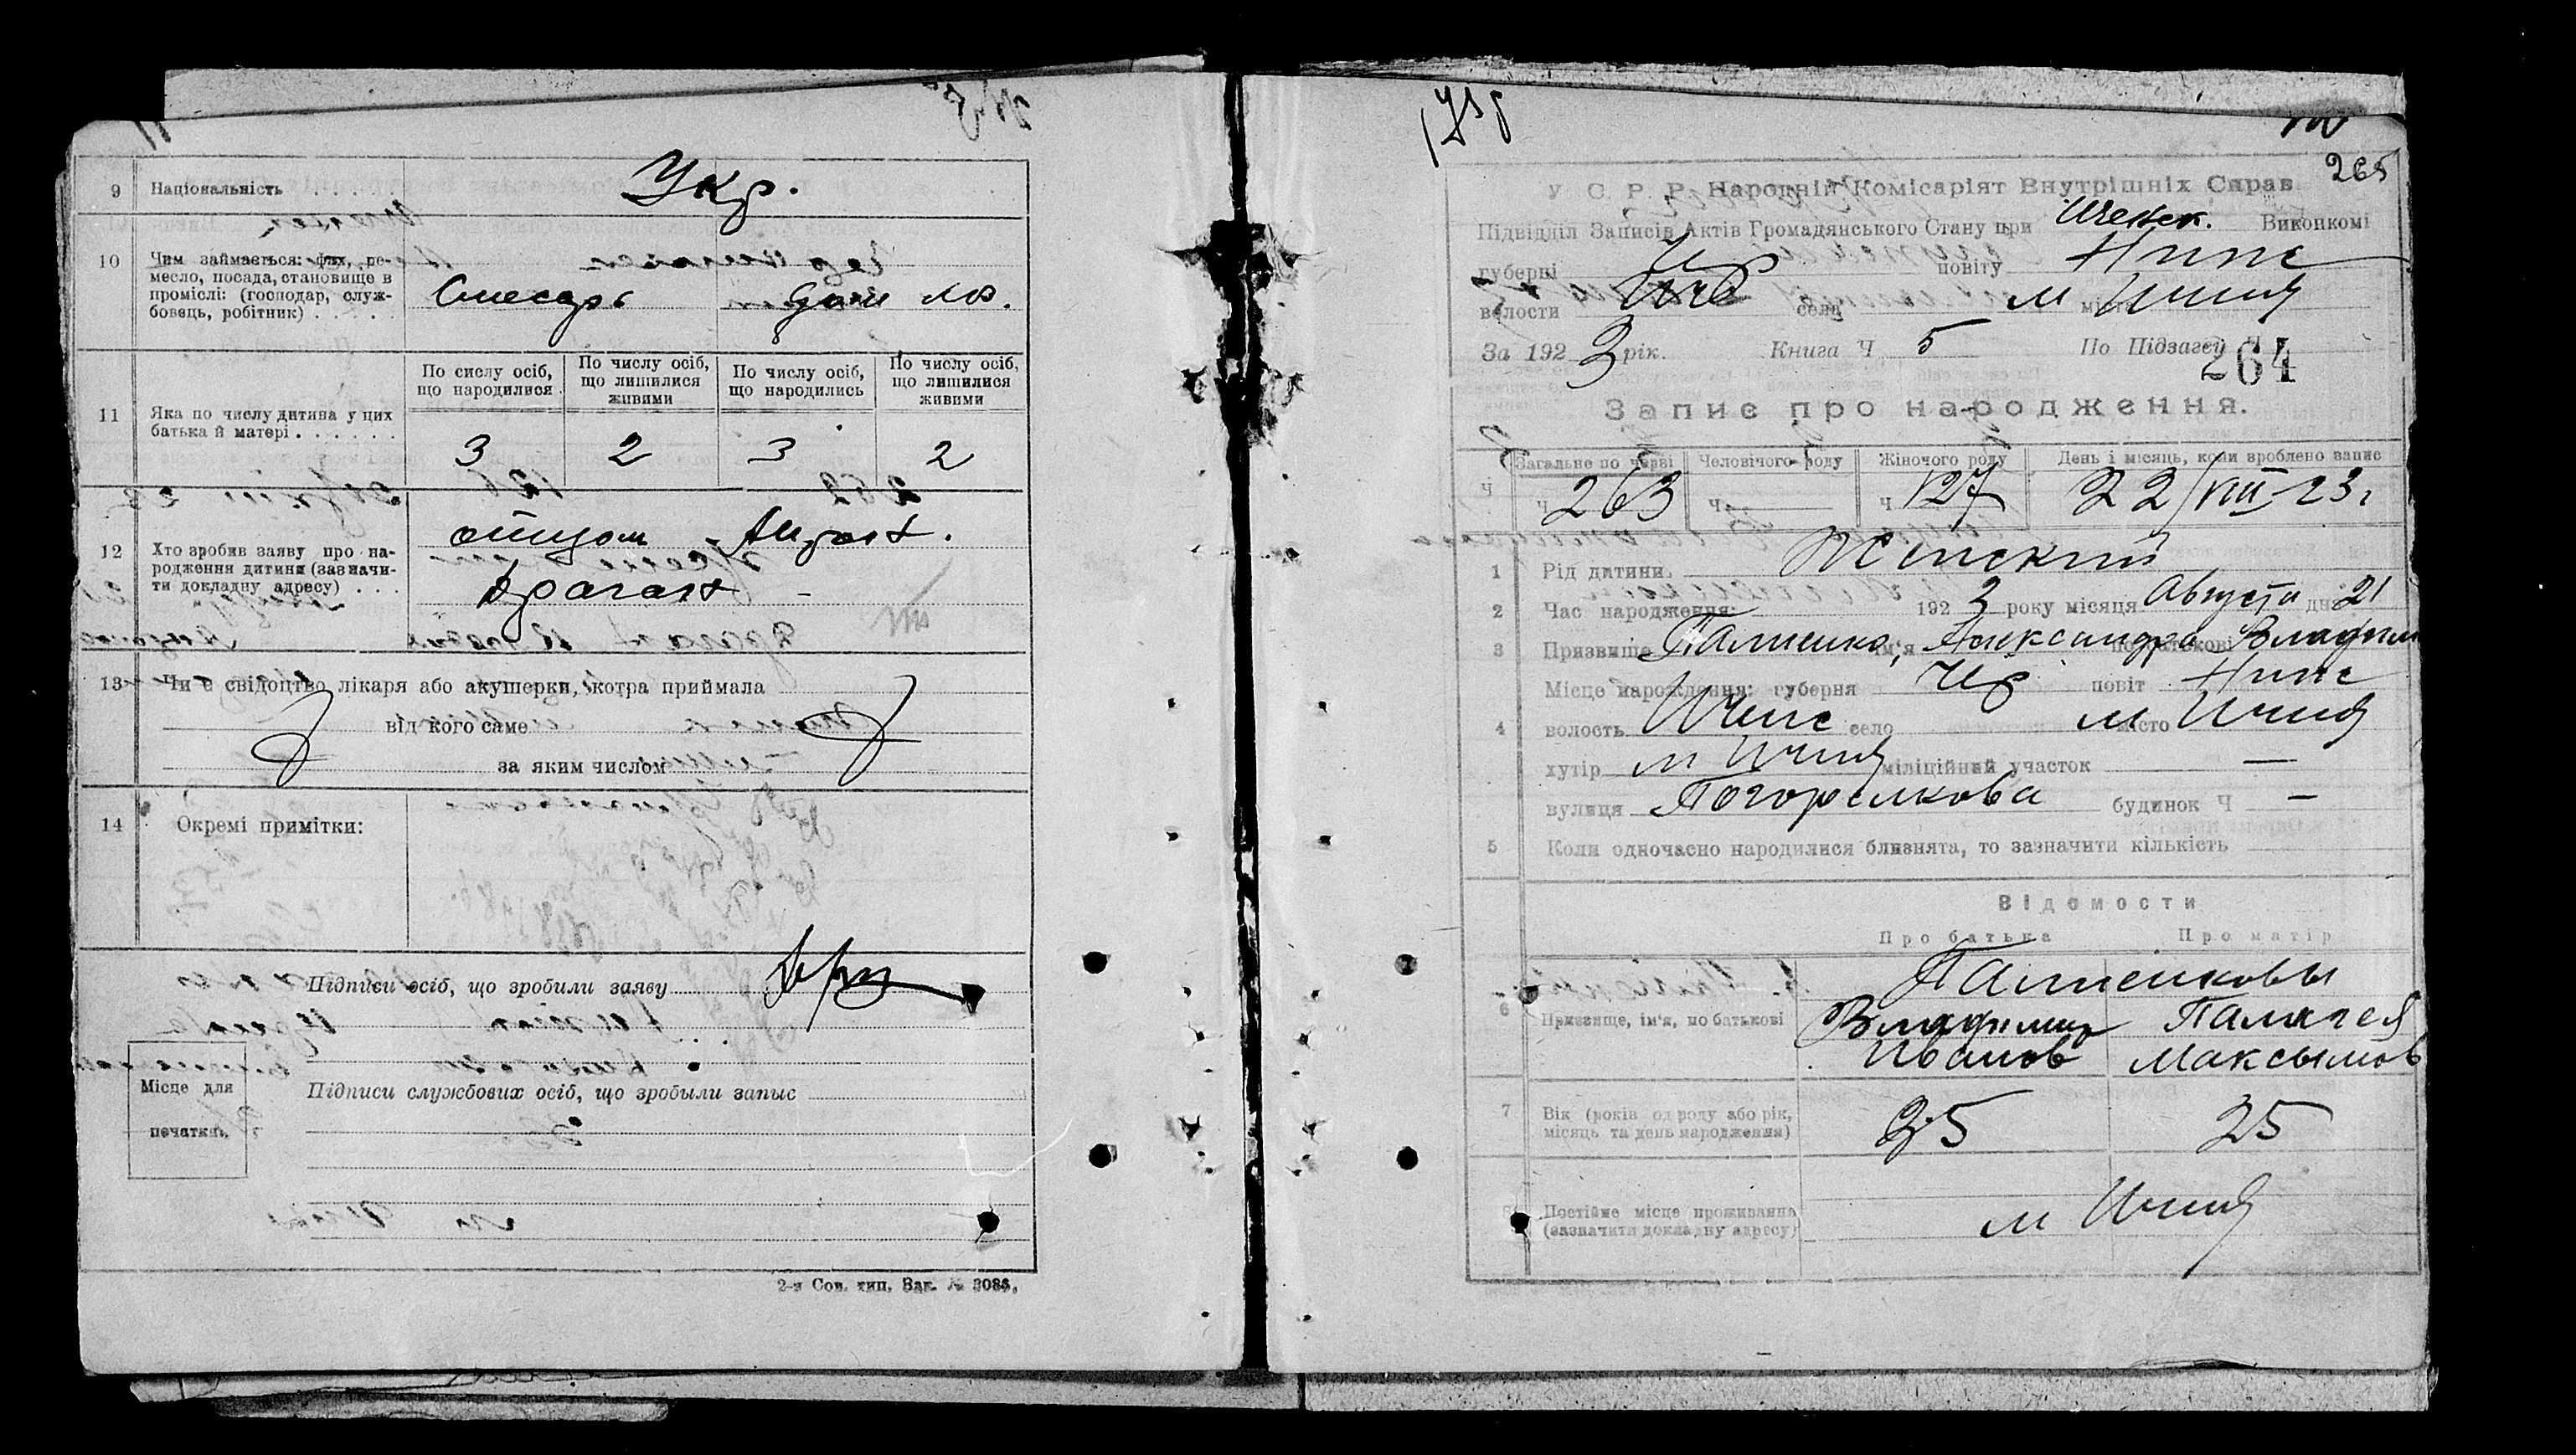 9 Національність . . . . Укр.
10 Чим займається: фах, ре-
месло, посада, становище в
проміслі: (господар, служ-
бовець, робітник) . . . .
Слесарь
дом хоз.
11 Яка по числу дитина у цих
батька й матері . . . . . .
По сислу осіб,
що народилися
По числу осіб,
що лишилися
живими
По числу осіб,
що народились
По числу осіб,
що лишилися
живими
3 2 3 2
12 Хто зробив заяву про на-
родження дитини (зазначи-
ти докладну адресу) . . .
отцом
13 Чи є свідоцтво лікаря або акушерки, котра приймала
від кого саме
за яким числом
14 Окремі примітки:
Підписи осіб, що зробили заяву
Місце для
печатки
Підписи службових осіб, що зробыли запыс
2-я Сов. тип. Зак. № 3086,
265
У. С. Р. Р. Народній Комісаріят Внутрішніх Справ
Підвідділ Записів Актів Громадянського Стану при Иченск. Виконкомі
губерні Чер повіту Нинс
волости Иче села м міста Ичня
За 192 3 рік. Книга Ч 5 По Підзагсу Ч
264
Запис про народження.
Загальне по черзі Человічого роду Жіночого роду День і місяць, коли вроблено запис
Ч ч 263 ч — ч 127 22/VIII 23 г
1 Рід дитини Женский
2 Час народження: 192 3 року місяця Августа дня 21
3 Призвище Пашенко, ім'я Александра по батькові Владим
4 Місце народження: губерня Чер повіт Нинс
волость Иченс село м місто Ичня
хутір м Ичня міліційний участок —
вулиця Погорелкова будинок Ч —
5 Коли одночасно народилися близнята, то зазначити кількість
Відомости
Про батька Про матір
6 Призвище, ім'я, по батькові
Пашенковы
Владимир Палагея
Иванов Максымов
7 Вік (років од роду або рік,
місяць та день народження)
35 25
8 Постійне місце проживання
(зазначити докладну адресу)
м Ичня